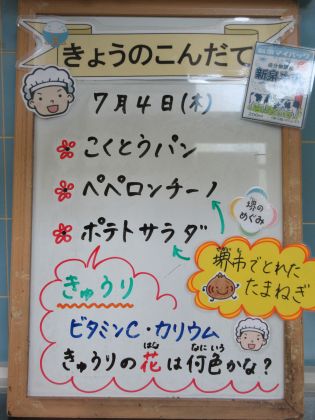 きょうのこんだて
7月4日(木)
こくとうパン
ペペロンチーノ
堺の
めぐみ
ポテトサラダ
堺市でとれた
たまねぎ
きゅうり
ビタミンC・カリウム
きゅうりの花は何色かな?
はな
なにいろ
200ml